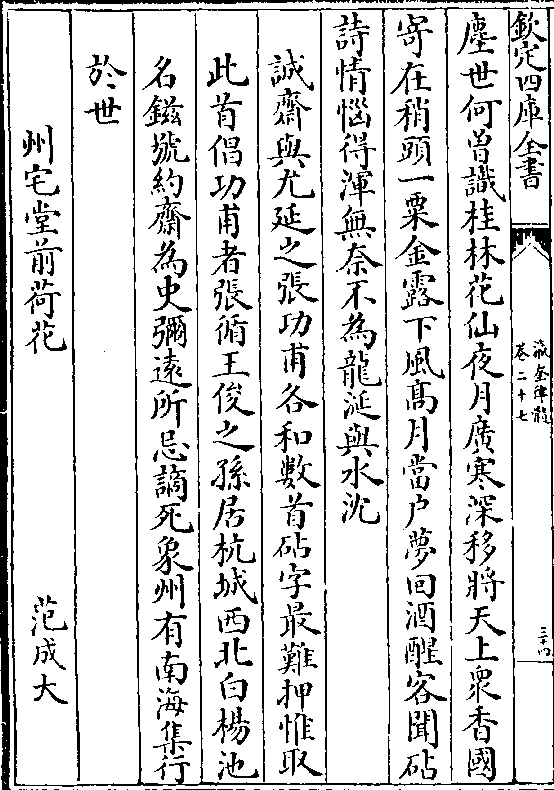 欽定四庫全書
瀛奎律髓
卷二十七
三十四
塵世何曽識桂林花仙夜月廣寒深移將天上衆香國
寄在稍頭一粟金露下風髙月當户夢回酒醒客聞砧
詩情惱得渾無奈不為龍涎與水沈
誠齋與尤延之張功甫各和數首砧字最難押惟取
此首倡功甫者張循王俊之孫居杭城西北白楊池
名鎡號約齋為史彌逺所忌謫死象州有南海集行
於世
州宅堂前荷花
范成大